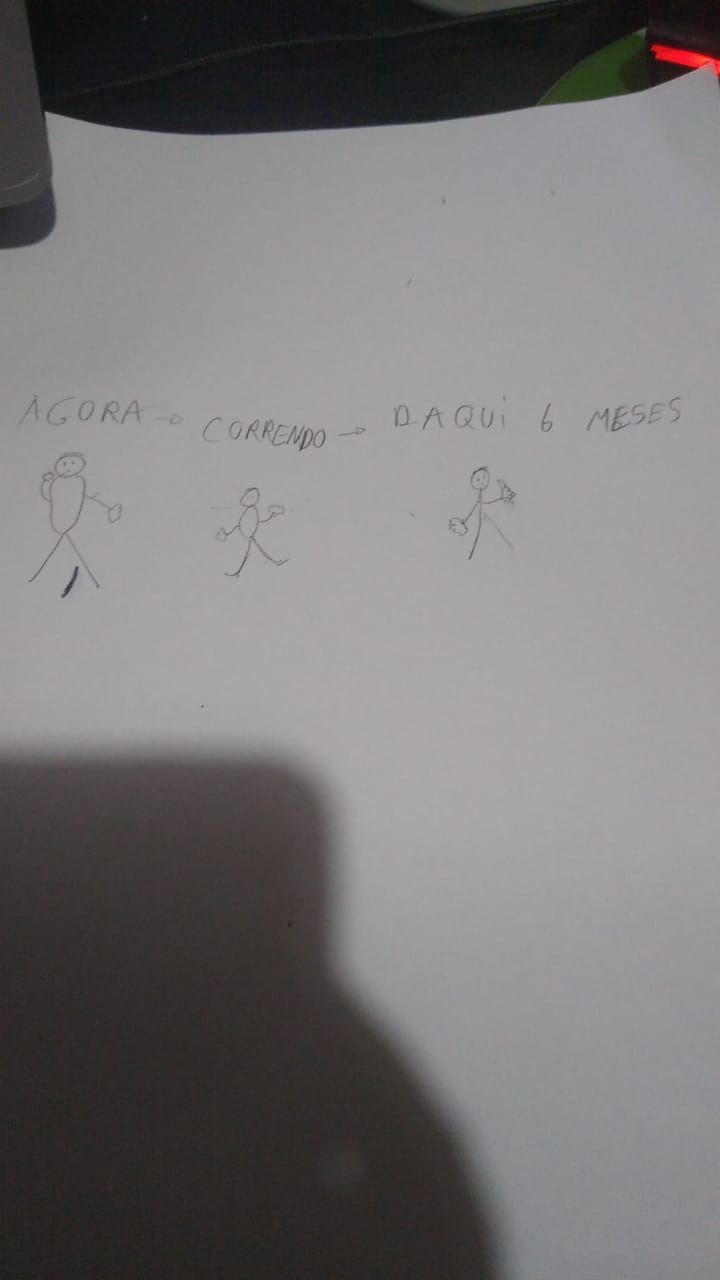 AGORA → CORRENDO → DAQUI 6 MESES